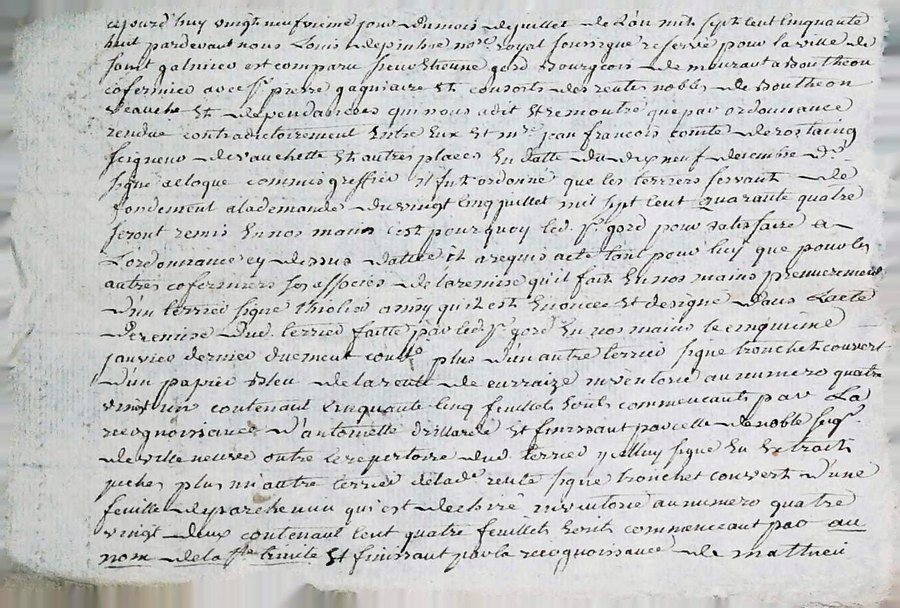 cejourd'huy vingt neufvieme jour du mois de juillet de l'an mil sept cent cinquante
huit pardevant nous Louis depimbre no.re royal soussigné reservé pour la ville de
saint galmier est comparu sieur Etienne gord Bourgeois de mourant a Boutheon
cofermier avec s.r pierre gagniaire et consorts des rentes nobles de Boutheon
veauche et dependances qui nous a dit et remontré que par ordonnance
rendue contradictoirement entre eux et m.re jean francois comte de rostaing
seigneur de vauchette et autres places en datte du dix neuf decembre d.r
signé deloque commis greffier il fut ordonné que les terriers servant de
fondement a la demande du vingt cinq juillet mil sept cent quarante quatre
seront remis en nos mains c'est pourquoy led. s.r gord pour satisfaire a
l'ordonnance cy dessus dattée et a requis acte tant pour luy que pour les
autres cofermiers ses associés de la remise qu'il fait en nos mains premierement
d'un terrier signé thiolier ainsy qu'il est enoncé et designé dans l'acte
de remise dud. terrier faitte par led. s.r gord en nos mains le cinquieme
janvier dernier duement coullé plus d'un autre terrier signé tronchet couvert
d'un papier bleu de la rente de curraize inventorié au numero quatre
vingt un contenant cinquante cinq feuillets ecrits commencant par La
recognoissance d'antoinette drillarde et finissant par celle de noble seig.r
de ville neuve outre le repertoire dud. terrier icelluy signé en extrait
pichet plus un autre terrier de lad.e rente signé tronchet couvert d'une
feuille de parchemin qui est dechiré inventorié au numero quatre
vingt deux contenant cent quatre feuillets ecrits commencant par au
nom de la s.te trinité et finissant par la recognoissance de mathieu